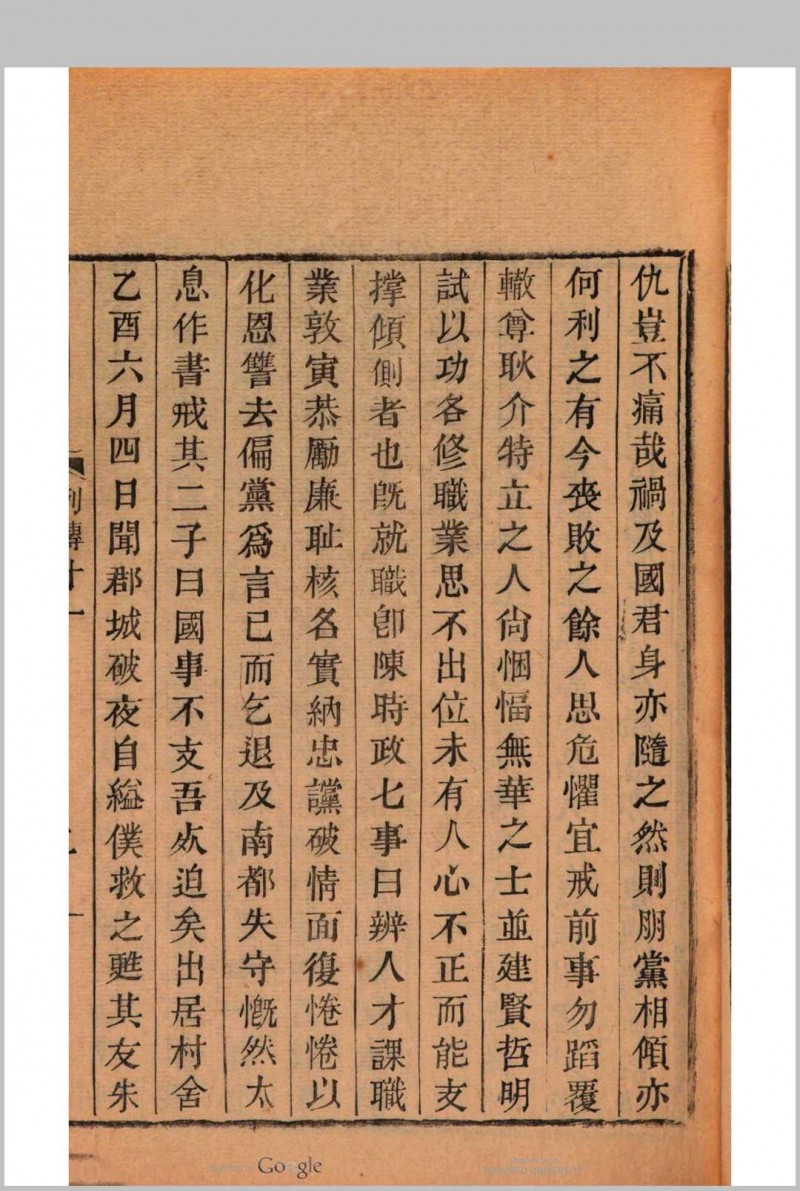 仇豈不痛哉禍及國君身亦隨之然則朋黨相傾亦
何利之有今喪敗之餘人思危懼宜戒前事勿蹈覆
轍尊耿介特立之人尙悃愊無華之士並建賢哲明
試以功各修職業思不出位未有人心不正而能支
撐傾側者也旣就職卽陳時政七事曰辨人才課職
業敦寅恭勵廉耻核名實納忠讜破情面復惓惓以
化恩讐去偏黨爲言已而乞退及南都失守慨然太
息作書戒其二子曰國事不支吾死迫矣出居村舍
乙酉六月四日聞郡城破夜自縊僕救之甦其友朱
列傳十一
Google